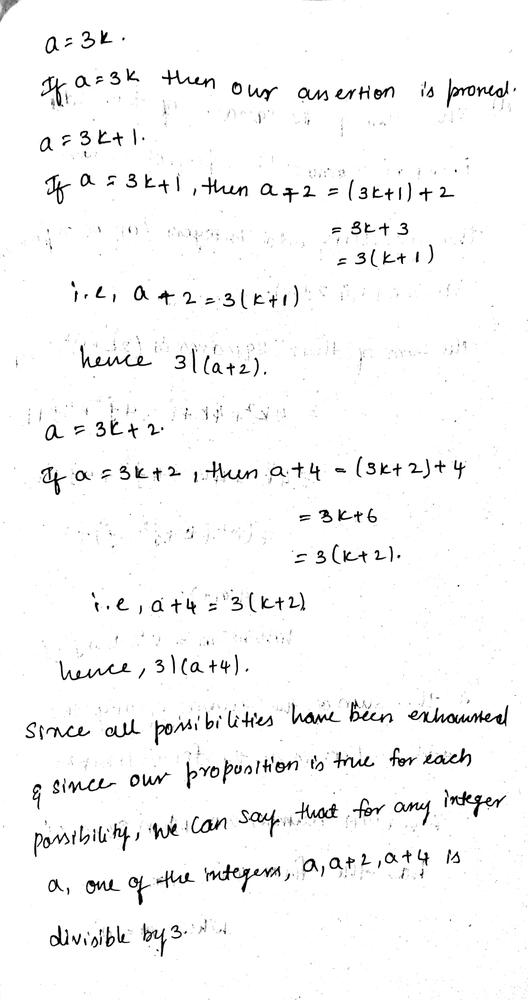 a = 3k.
If a = 3k then our assertion is proved.
a = 3k + 1.
If a = 3k+1, then a + 2 = (3k+1) + 2
= 3k + 3
= 3(k + 1)
i.e, a + 2 = 3(k+1)
hence 3|(a+2).
a = 3k + 2.
If a = 3k+2, then a + 4 = (3k+2) + 4
= 3k+6
= 3(k+2).
i.e, a+4 = 3(k+2)
hence, 3|(a+4).
Since all possibilities have been exhausted
& since our proposition is true for each
possibility, we can say that for any integer
a, one of the integers, a, a+2, a+4 is
divisible by 3.